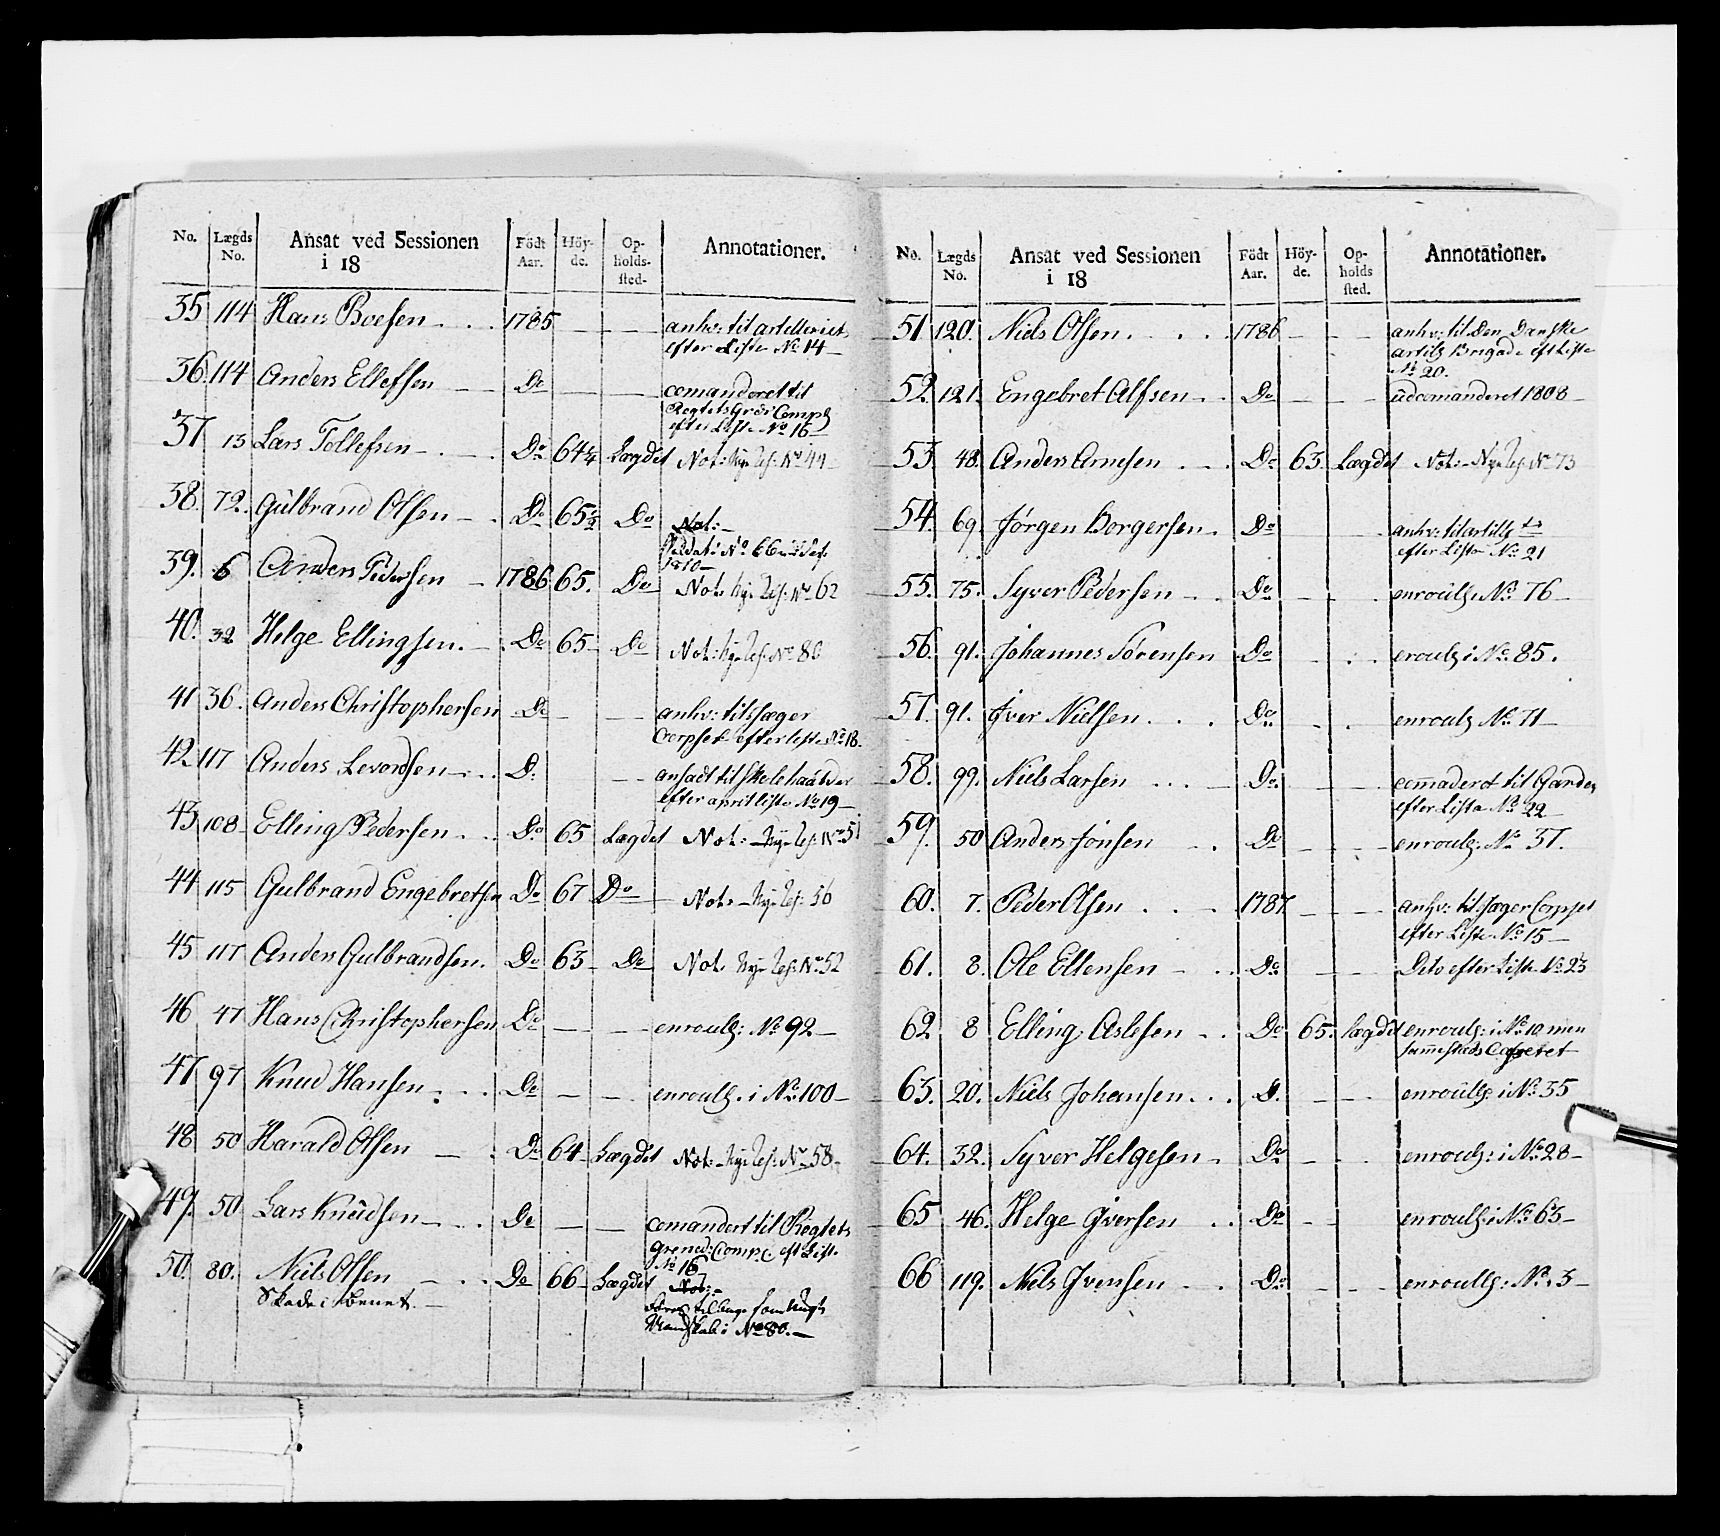 No. Lægds No. Ansat ved Sessionen i 18 Födt Aar. Höyde. Opholds-sted. Annotationer.
35 114 Hans Boesen 1785 — — anhv: til artilleriet
efter Liste No 14
36. 114 Anders Ellefsen Do — — comanderet til
Regtets Gren: Comp
efter Liste No 16
37 13 Lars Tollefsen Do 64¼ Lægdet Not:
No 44
38. 72. Gulbrand Olsen Do 65½ Do Not:
No 66
1810
39. 6 Anders Pedersen 1786 65. Do Not: No 62
40. 32 Helge Ellingsen Do 65 Do Not: No 80
41 36. Anders Christophersen Do — — anhv: til Jæger
Corpset efter liste No 18.
42 117 Anders Levordsen D: — ansadt til
efter april liste No 19
43 108 Elling Pedersen Do 65 Lægdet Not: No 51
44 115 Gulbrand Engebretsen Do 67 Do Not: 56
45 117 Anders Gulbrandsen. Do 63 Do Not: No 52
46 47 Hans Christophersen Do — — enroull: No 92
47 97 Knud Hansen Do — — enroull. i No 100
48 50 Harald Olsen Do 64 Lægdet Not: No 58
49. 50 Lars Knudsen Do — — comandert til Regtets
Grened: Comp. eft List
No 16
50. 80. Niels Olsen Do 66 Lægdet Not:
Skade i Benet.
Mandskab i No 80.
No. Lægds No. Ansat ved Sessionen i 18 Födt Aar. Höyde. Opholds sted. Annotationer.
51 120. Niels Olsen 1786 — — anhv: til Den Danske
artill Brigade eft Liste
No 20.
52. 121. Engebret Alfsen Do — — udcomanderet 1808
53 48. Anders Arnesen Do 63. Lægdet Not: No 73
54. 69 Jørgen Borgersen. Do anhv: til artill
efter Liste No 21
55. 75. Syver Pedersen Do — enroull. No 76
56. 91. Johannes Sørensen Do — enroull i No. 85.
57. 91. Iver Nielsen Do enroull No 71
58. 99. Niels Larsen Do comaderet til Garden
efter Liste No 22
59. 50 Anders Jonsen Do — enroull: No 37.
60. 7. Peder Olsen 1787 — anhv: til Jæger Corpset
efter Liste No 15
61. 8. Ole Ellensen Do — Dito efter Liste No 23
62 8 Elling Aslesen Do 65. Lægdet enroull: i No 10 men
sammesteds Casseret
63. 20. Niels Johansen D. — enroull: i No 35
64. 32. Syver Helgesen Do — enroull: i No 28
65 46. Helge Iversen Do — enroull: i No 63
66 119. Niels Ivensen Do — enroull: No. 3